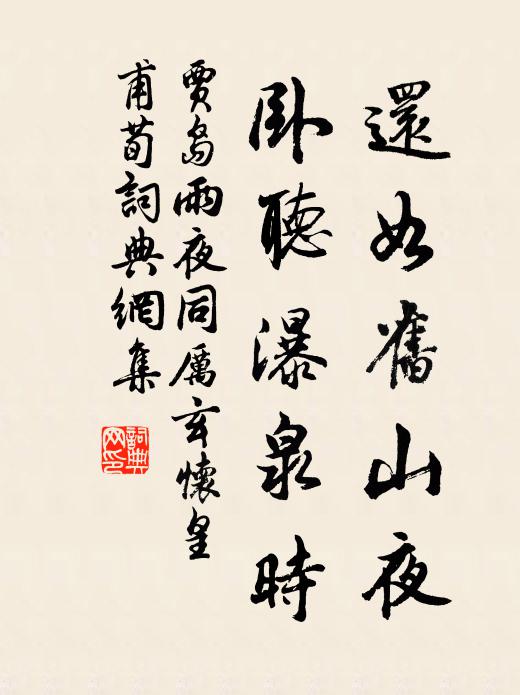 還如舊山夜
卧聽瀑泉時
賈島雨夜同厲玄懷皇
甫荀詞典網集
詞典
网印